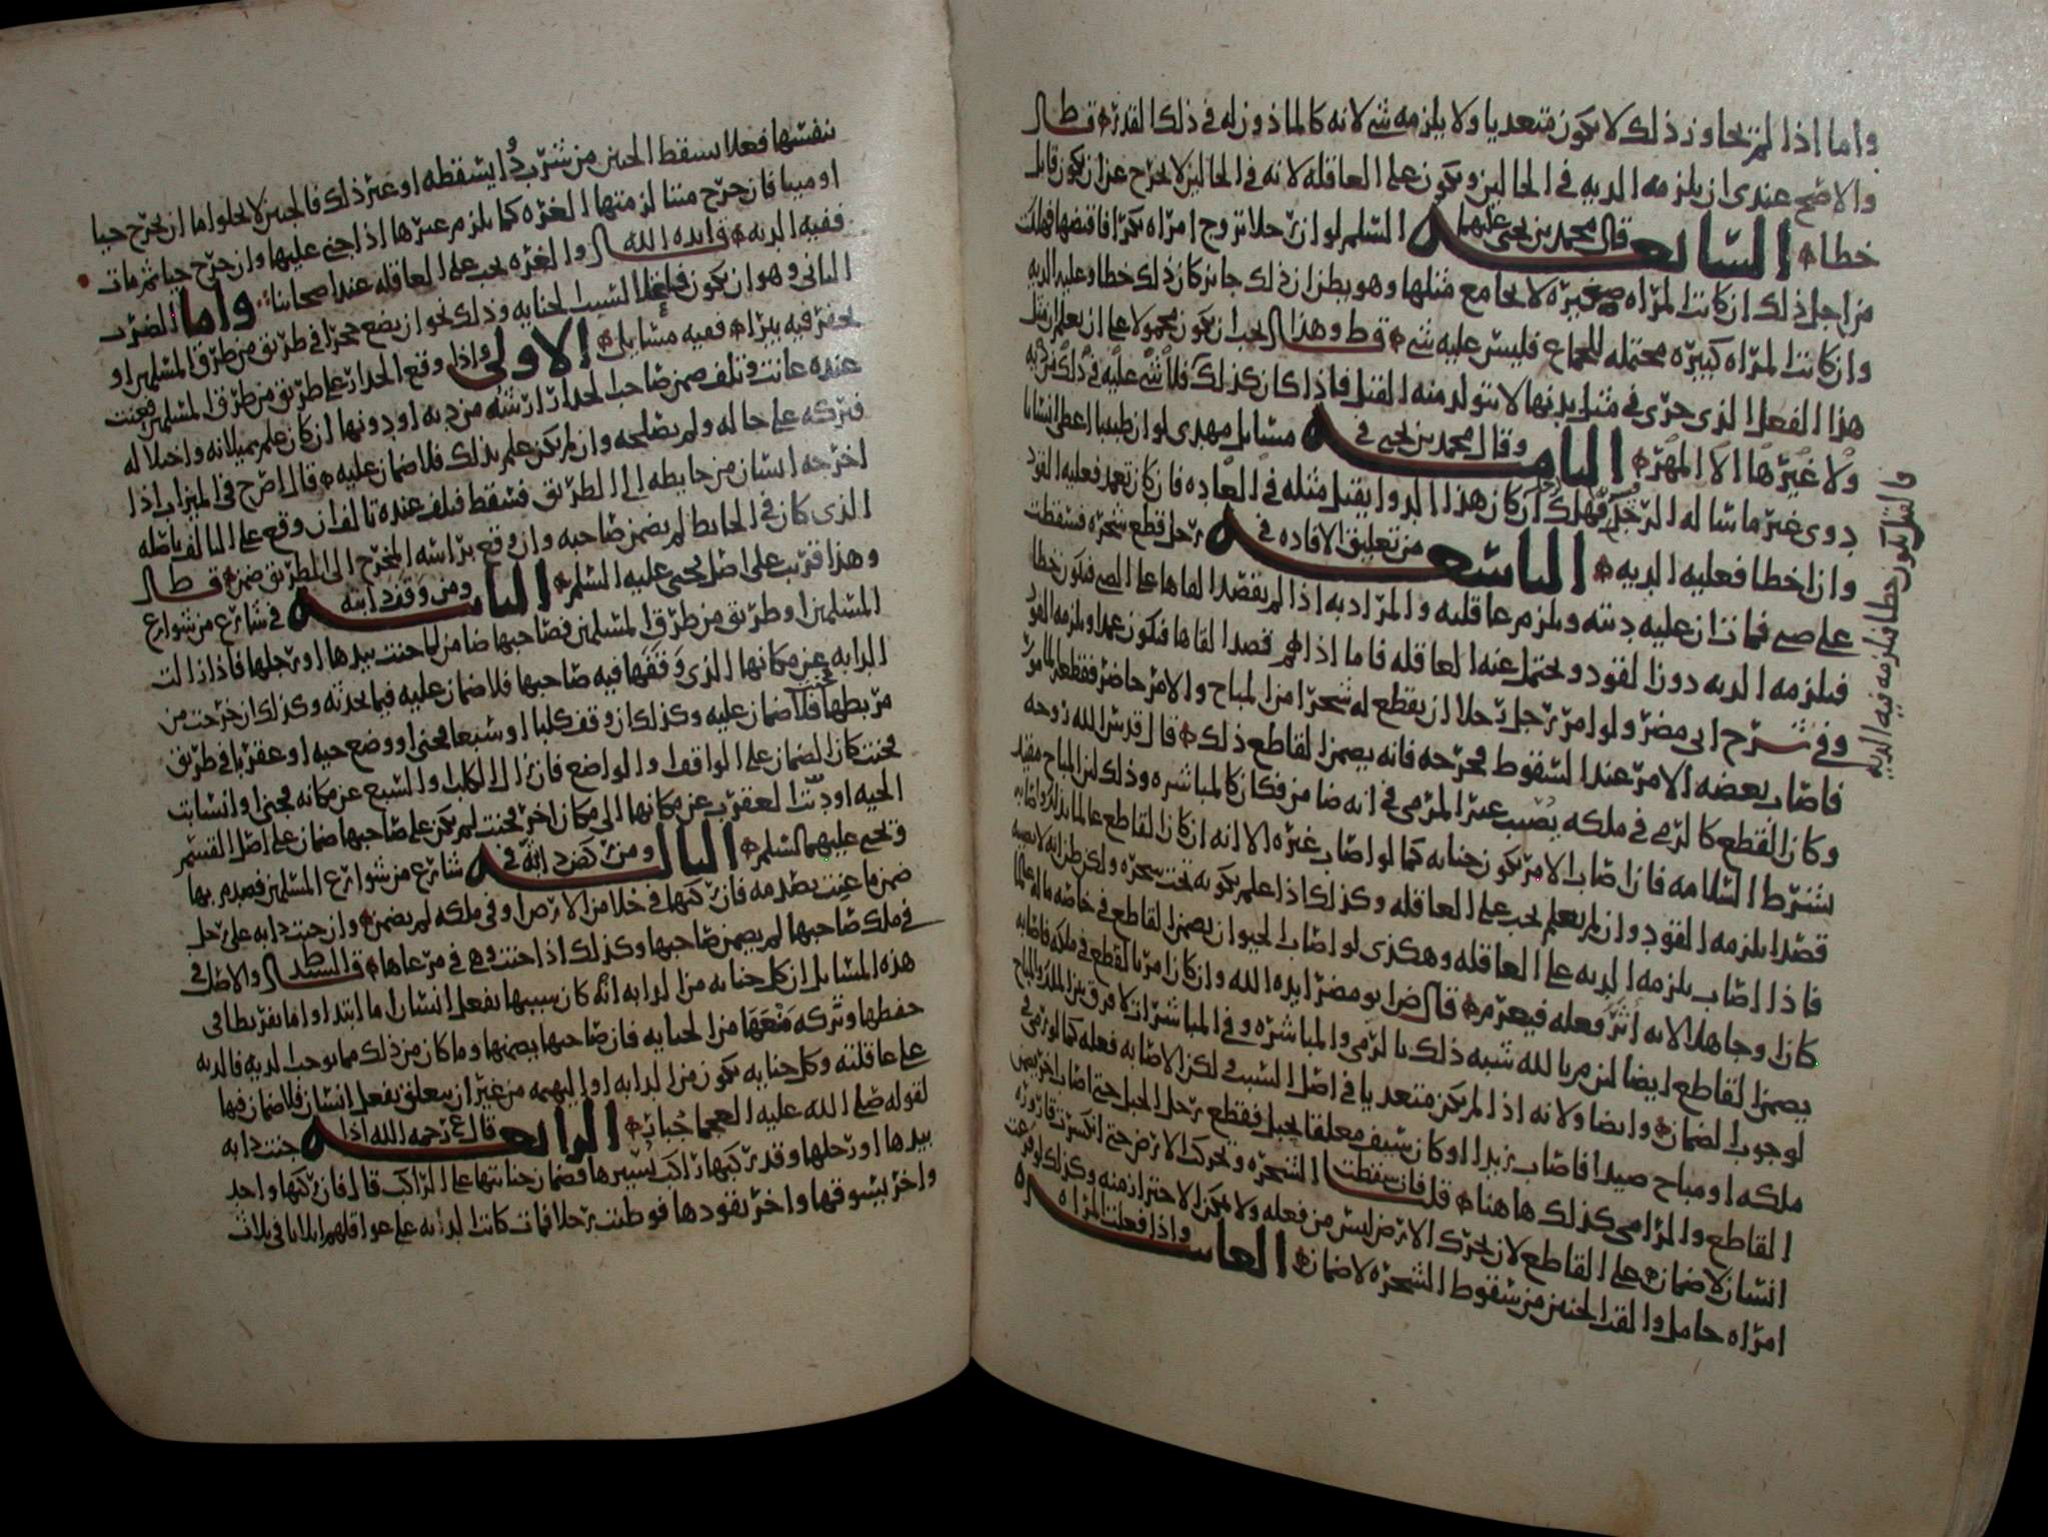 واما اذا لم يتجاوز ذلك لا يكون متعديا ولا يلزمه شي لانه كالماذون له في ذلك القدر قط ال
والاصح عندي ان يلزمه الديه في الحالين ويكون على العاقله لانه في الحالين لا يخرج عن ان يكون قاتل
خطا السابعه قال محمد بن يحيى عليهما السلم لو ان رجلا تزوج امراه بكرا فاقتضها فهلكت
من اجل ذلك ان كانت المراه صغيره لا يجامع مثلها وهو يظن ان ذلك جايز كان ذلك خطا وعليه الديه
وان كانت المراه كبيره محتمله للجماع فليس عليه شي قط وهذا ال يجب ان يكون محمولا على ان يعلم ان مثل
هذا الفعل الذي جرى في مثل بدنها لا يتولد منه القتل فاذا كان كذلك فلا شي عليه في ذلك من ديه
ولا غيرها الا المهر الثامنه وقال محمد بن يحيى في مسايل مهدي لو ان طبيبا اعطى انسانا
دوى غير ما ساله الرجل فهلك ان كان هذا الدوا يقتل مثله في العاده فان كان تعمد فعليه القود
وان اخطا فعليه الديه التاسعه من تعليق الافاده في رجل قطع شجره فسقطت
على صبي فمات ان عليه ديته ويلزم عاقلته والمراد به اذا لم يقصد القاها على الصبي فيكون خطا
فيلزمه الديه دون القود ويحتمل عنه العاقله فاما اذا هم قصد القاها فيكون عمدا ويلزمه القود
وفي شرح ابي مضر ولو امر رجل رجلا ان يقطع له شجرا من المباح والامر حاضر فقطع المامور
فاصاب بعضه الامر عند السقوط فجرحه فانه يضمن القاطع ذلك قال قدس الله روحه
وكان القطع كالرمي في ملكه يصيب غير المرمي في انه ضامن فكان كالمباشره وذلك لان المباح مقيد
بشرط السلامه فان اصاب الامر يكون جنايه كما لو اصاب غيره الا انه ان كان القاطع عالما بذلك واصابه
قصدا يلزمه القود وان لم يعلم يجب على العاقله وكذلك اذا علم بكونه تحت شجره ولكن ظن انه لا يصيبه
فاذا اصاب يلزمه الديه على العاقله وهكذى لو اصاب الحيوان يضمن القاطع في خاصه ماله عالما
كان او جاهلا لانه اثر فعله فيغرم قال ض ابو مضر ايده الله وان كان امر بالقطع في ملكه فاصابه
يضمن القاطع ايضا لنزم بالله شبه ذلك بالرمي والمباشره وفي المباشرات لا فرق بين الملك والمباح
لوجوب الضمان وايضا ولانه اذا لم يكن متعديا في اصل السبب لكن الاصابه فعله كما لو رمى في
ملكه او مباح صيدا فاصاب زيدا او كان سيف معلقا بحبل فقطع رجل الحبل حتى اصاب اخر يضمن
القاطع والرامي كذلك هاهنا قلت فان سقطت الشجره وتحرك الارض حتى انكسرت قاروره
انسان لا ضمان على القاطع لان تحرك الارض ليس من فعله ولا يمكن الاحتراز منه وكذلك لو فزعت
امراه حامل والقت الجنين من سقوط الشجره لا ضمان العاشره واذا فعلت المراه
والقتل يكون خطا فيلزمه فيه الديه
بنفسها فعلا يسقط الجنين من شرب دوا يسقطه او غير ذلك فالجنين لا يخلوا اما ان يخرج حيا
او ميتا فان خرج ميتا لزمتها الغره كما يلزم غيرها اذا جنى عليها وان خرج حيا ثم مات
ففيه الديه م ايده الله والغره يجب على العاقله عند اصحابنا واما الضرب
الثاني وهو ان يكون فاعلا لسبب الجنايه وذلك نحو ان يضع حجرا في طريق من طرق المسلمين او
يحفر فيه بيرا ففيه مسايل الاولى واذا وقع الجدار على طريق من طرق المسلمين فعنت
عنده عانت وتلف ضمن صاحب الجدار ارشه من ديه او دونها ان كان علم بميلانه واختلاله
فتركه على حاله ولم يصلحه وان لم يكن علم بذلك فلا ضمان عليه قال ا ص ح في الميزاب اذا
اخرجه انسان من حايطه الى الطريق فسقط فتلف عنده تالف ان وقع على التالف باصله
الذي كان في الحايط لم يضمن صاحبه وان وقع براسه المخرج الى الطريق ضمن قط ال
وهذا قريب على اصل يحيى عليه السلم الثانيه ومن وقف دابته في شارع من شوارع
المسلمين او طريق من طرق المسلمين فصاحبها ضامن لما جنت بيدها او رجلها فاذا زالت
الدابه عن مكانها الذي وقفها فيه صاحبها فلا ضمان عليه فيما تحدثه وكذلك ان خرجت من
مربطها فجنت فلا ضمان عليه وكذلك ان وقف كلبا او سبعا فجنى او وضع حيه او عقربا في طريق
فجنت كان الضمان على الواقف والواضع فان زال الكلب والسبع عن مكانه فجنى او انسابت
الحيه او دبت العقرب عن مكانها الى مكان اخر فجنت لم يكن على صاحبها ضمان على اصل القسم
ويحيى عليهما السلم الثالثه ومن كض دابته في شارع من شوارع المسلمين فصدم بها
ضمن ما عنت بصدمه فان ركبها في خلا من الارض او في ملكه لم يضمن وان جنت دابه على رجل
في ملك صاحبها لم يضمن صاحبها وكذلك اذا جنت وهي في مرعاها ق السيد ط ال والاصل في
هذه المسايل ان كل جنايه من الدابه انه كان سببها بفعل انسان اما ابتدا واما بتفريط في
حفظها وتركه منعها من الجنايه فان صاحبها يضمنها وما كان من ذلك مما يوجب الديه فالديه
على عاقلته وكل جنايه يكون من الدابه او البهيمه من غير ان يتعلق بفعل انسان فلا ضمان فيها
لقوله صلى الله عليه العجما جبار الرابعه قال ع رحمه الله اذا جنت دابه
بيدها او رجلها وقد ركبها راكب يسيرها فضمان جنايتها على الراكب قال فان ركبها واحد
واخر يسوقها واخر يقودها فوطئت رجلا فمات كانت الديه على عواقلهم اثلاثا في ثلاث